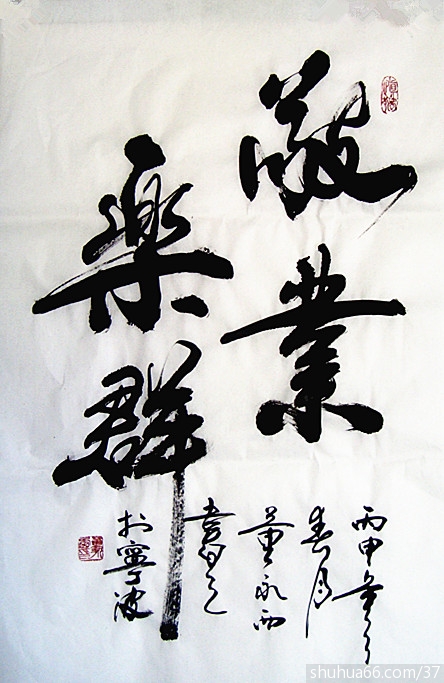 敬業
樂群
丙申年
春月
董永西
書之
於寧波
shuhua66.com/37